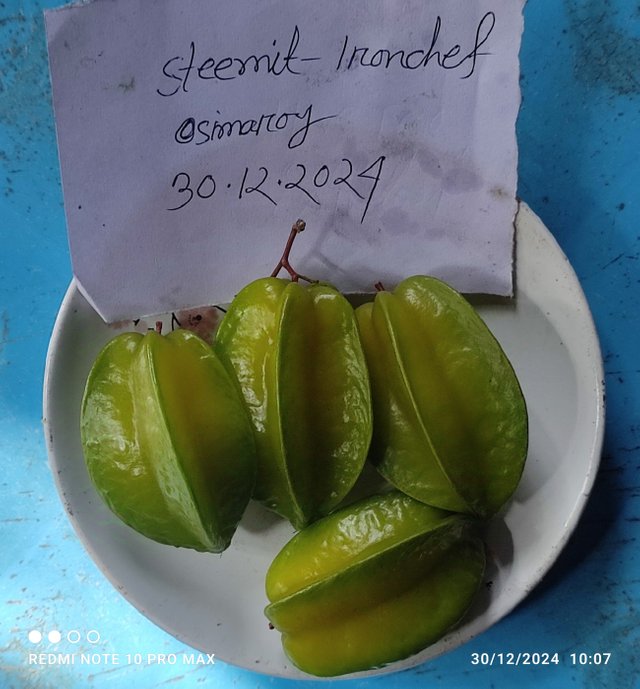 steemit- Ironchef
@simaroy
30.12.2024
REDMI NOTE 10 PRO MAX
30/12/2024 10:07